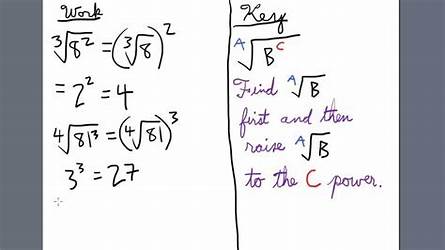 Work
∛8² = (∛8)²
= 2² = 4
∜81³ = (∜81)³
3³ = 27
Key
ᴬ√Bᶜ
Find ᴬ√B
first and then
raise ᴬ√B
to the C power.